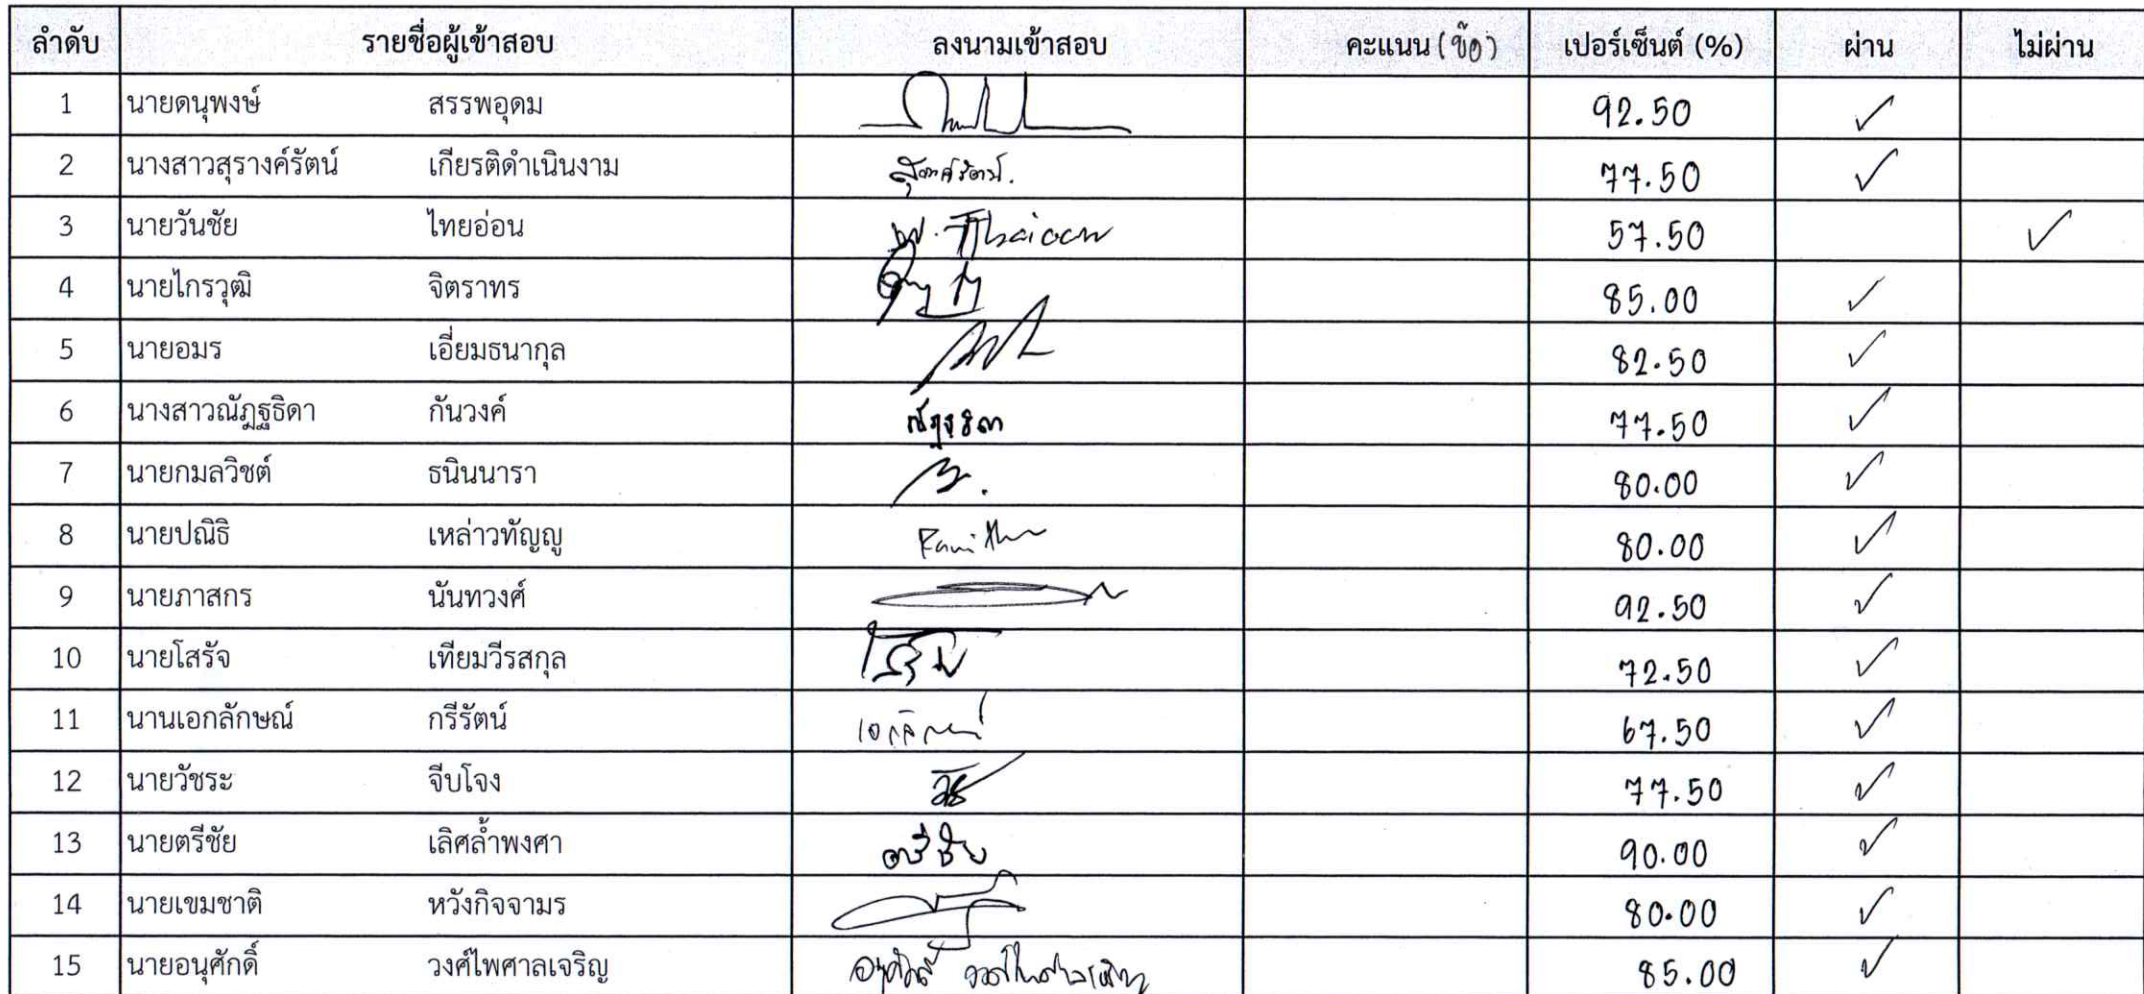 ลำดับ รายชื่อผู้เข้าสอบ ลงนามเข้าสอบ คะแนน (ข้อ) เปอร์เซ็นต์ (%) ผ่าน ไม่ผ่าน
1 นายดนุพงษ์ สรรพอุดม 92.50 ✓
2 นางสาวสุรางค์รัตน์ เกียรติดำเนินงาม สุรางค์รัตน์. 77.50 ✓
3 นายวันชัย ไทยอ่อน W. Thaioon 57.50 ✓
4 นายไกรวุฒิ จิตราทร 85.00 ✓
5 นายอมร เอี่ยมธนากุล 82.50 ✓
6 นางสาวณัฏฐธิดา กันวงค์ ณัฏฐธิดา 77.50 ✓
7 นายกมลวิชต์ ธนินนารา 80.00 ✓
8 นายปณิธิ เหล่าวทัญญู 80.00 ✓
9 นายภาสกร นันทวงศ์ 92.50 ✓
10 นายโสรัจ เทียมวีรสกุล 72.50 ✓
11 นานเอกลักษณ์ กรีรัตน์ เอกลักษณ์ 67.50 ✓
12 นายวัชระ จีบโจง 77.50 ✓
13 นายตรีชัย เลิศล้ำพงศา ตรีชัย 90.00 ✓
14 นายเขมชาติ หวังกิจจามร 80.00 ✓
15 นายอนุศักดิ์ วงศ์ไพศาลเจริญ อนุศักดิ์ วงศ์ไพศาลเจริญ 85.00 ✓